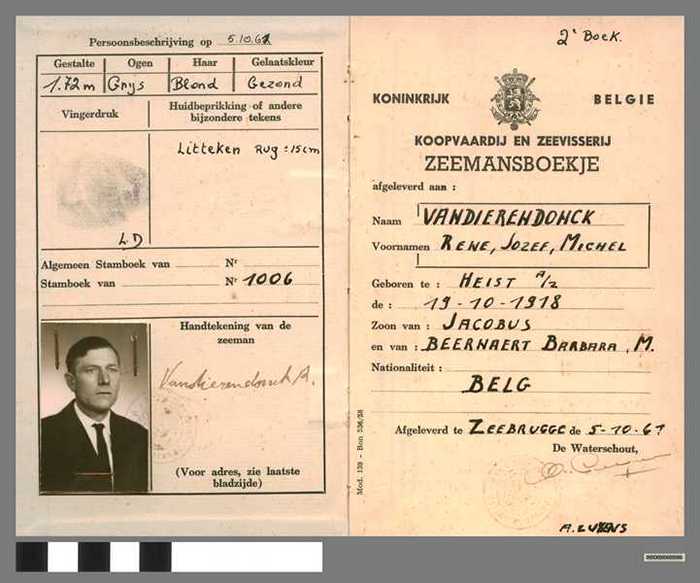 Persoonsbeschrijving op 5.10.61
Gestalte Ogen Haar Gelaatskleur
1.72m Grys Blond Gezond
Vingerdruk
Huidbeprikking of andere
bijzondere tekens
Litteken Rug : 15cm
L D
Algemeen Stamboek van Nr
Stamboek van Nr 1006
Handtekening van de
zeeman
Vandierendonck R.
(Voor adres, zie laatste
bladzijde)
2e Boek.
KONINKRIJK BELGIE
KOOPVAARDIJ EN ZEEVISSERIJ
ZEEMANSBOEKJE
afgeleverd aan :
Naam VANDIERENDONCK
Voornamen RENE, JOZEF, MICHEL
Geboren te : HEIST A/Z
de : 19-10-1918
Zoon van : JACOBUS
en van : BEERNAERT BARBARA, M.
Nationaliteit :
BELG
Afgeleverd te ZEEBRUGGE de 5-10-61
De Waterschout,
A. LUYENS
Mod. 139 - Bon 536/58